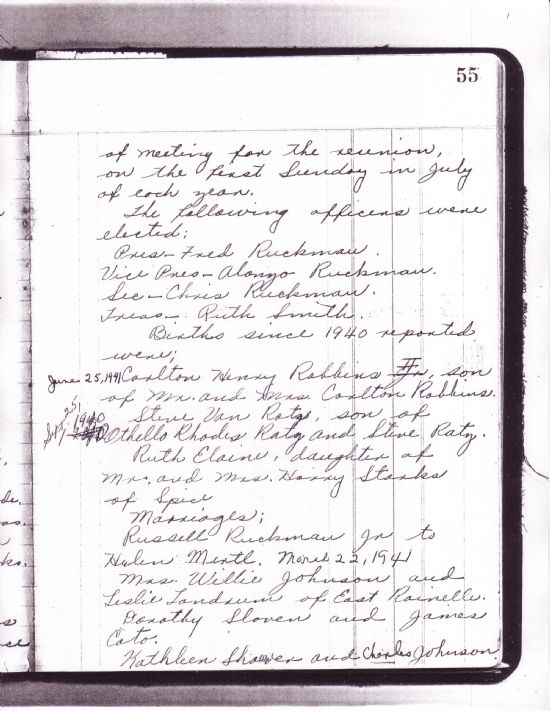 55
of meeting for the reunion,
on the first Sunday in July
of each year.
The following officers were
elected;
Pres- Fred Ruckman.
Vice Pres- Alonzo Ruckman.
Sec- Chris Ruckman.
Treas- Ruth Smith.
Births since 1940 reported
were;
June 25, 1941 Carlton Henry Robbins II, son
of Mr. and Mrs. Carlton Robbins.
Sept. 25, 1940
Steve Van Ratz, son of
Othello Rhodis Ratz and Steve Ratz.
Ruth Elaine, daughter of
Mr. and Mrs. Harry Starks
of Spice
Marriages;
Russell Ruckman Jr to
Helen Mertl. March 22, 1941
Mrs. Willie Johnson and
Leslie Landrum of East Rainelle.
Dorothy Sloven and James
Cato.
Kathleen Shawver and Charles Johnson